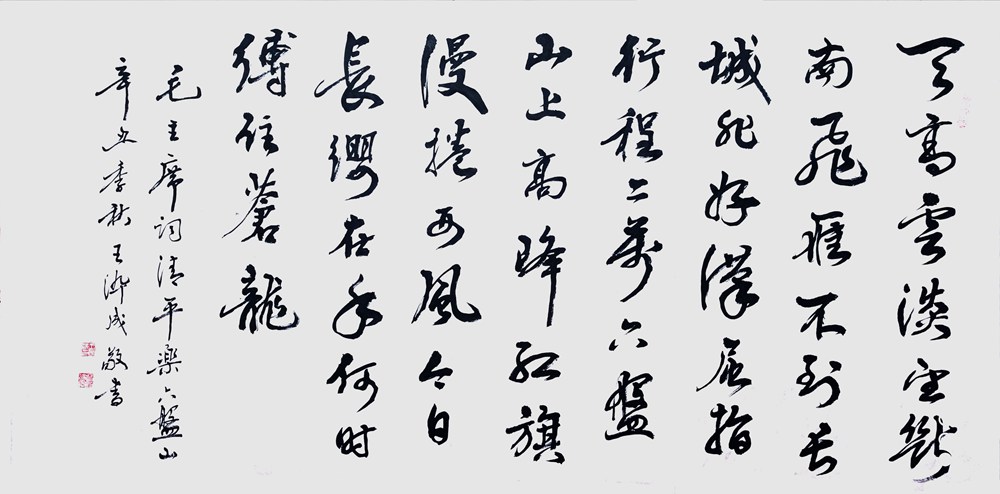 天高雲淡望斷
南飛雁不到长
城非好漢屈指
行程二萬六盤
山上高峰红旗
漫捲西風今日
長纓在手何时
縛住蒼龍
毛主席词清平樂六盤山
辛丑季秋王成敬書